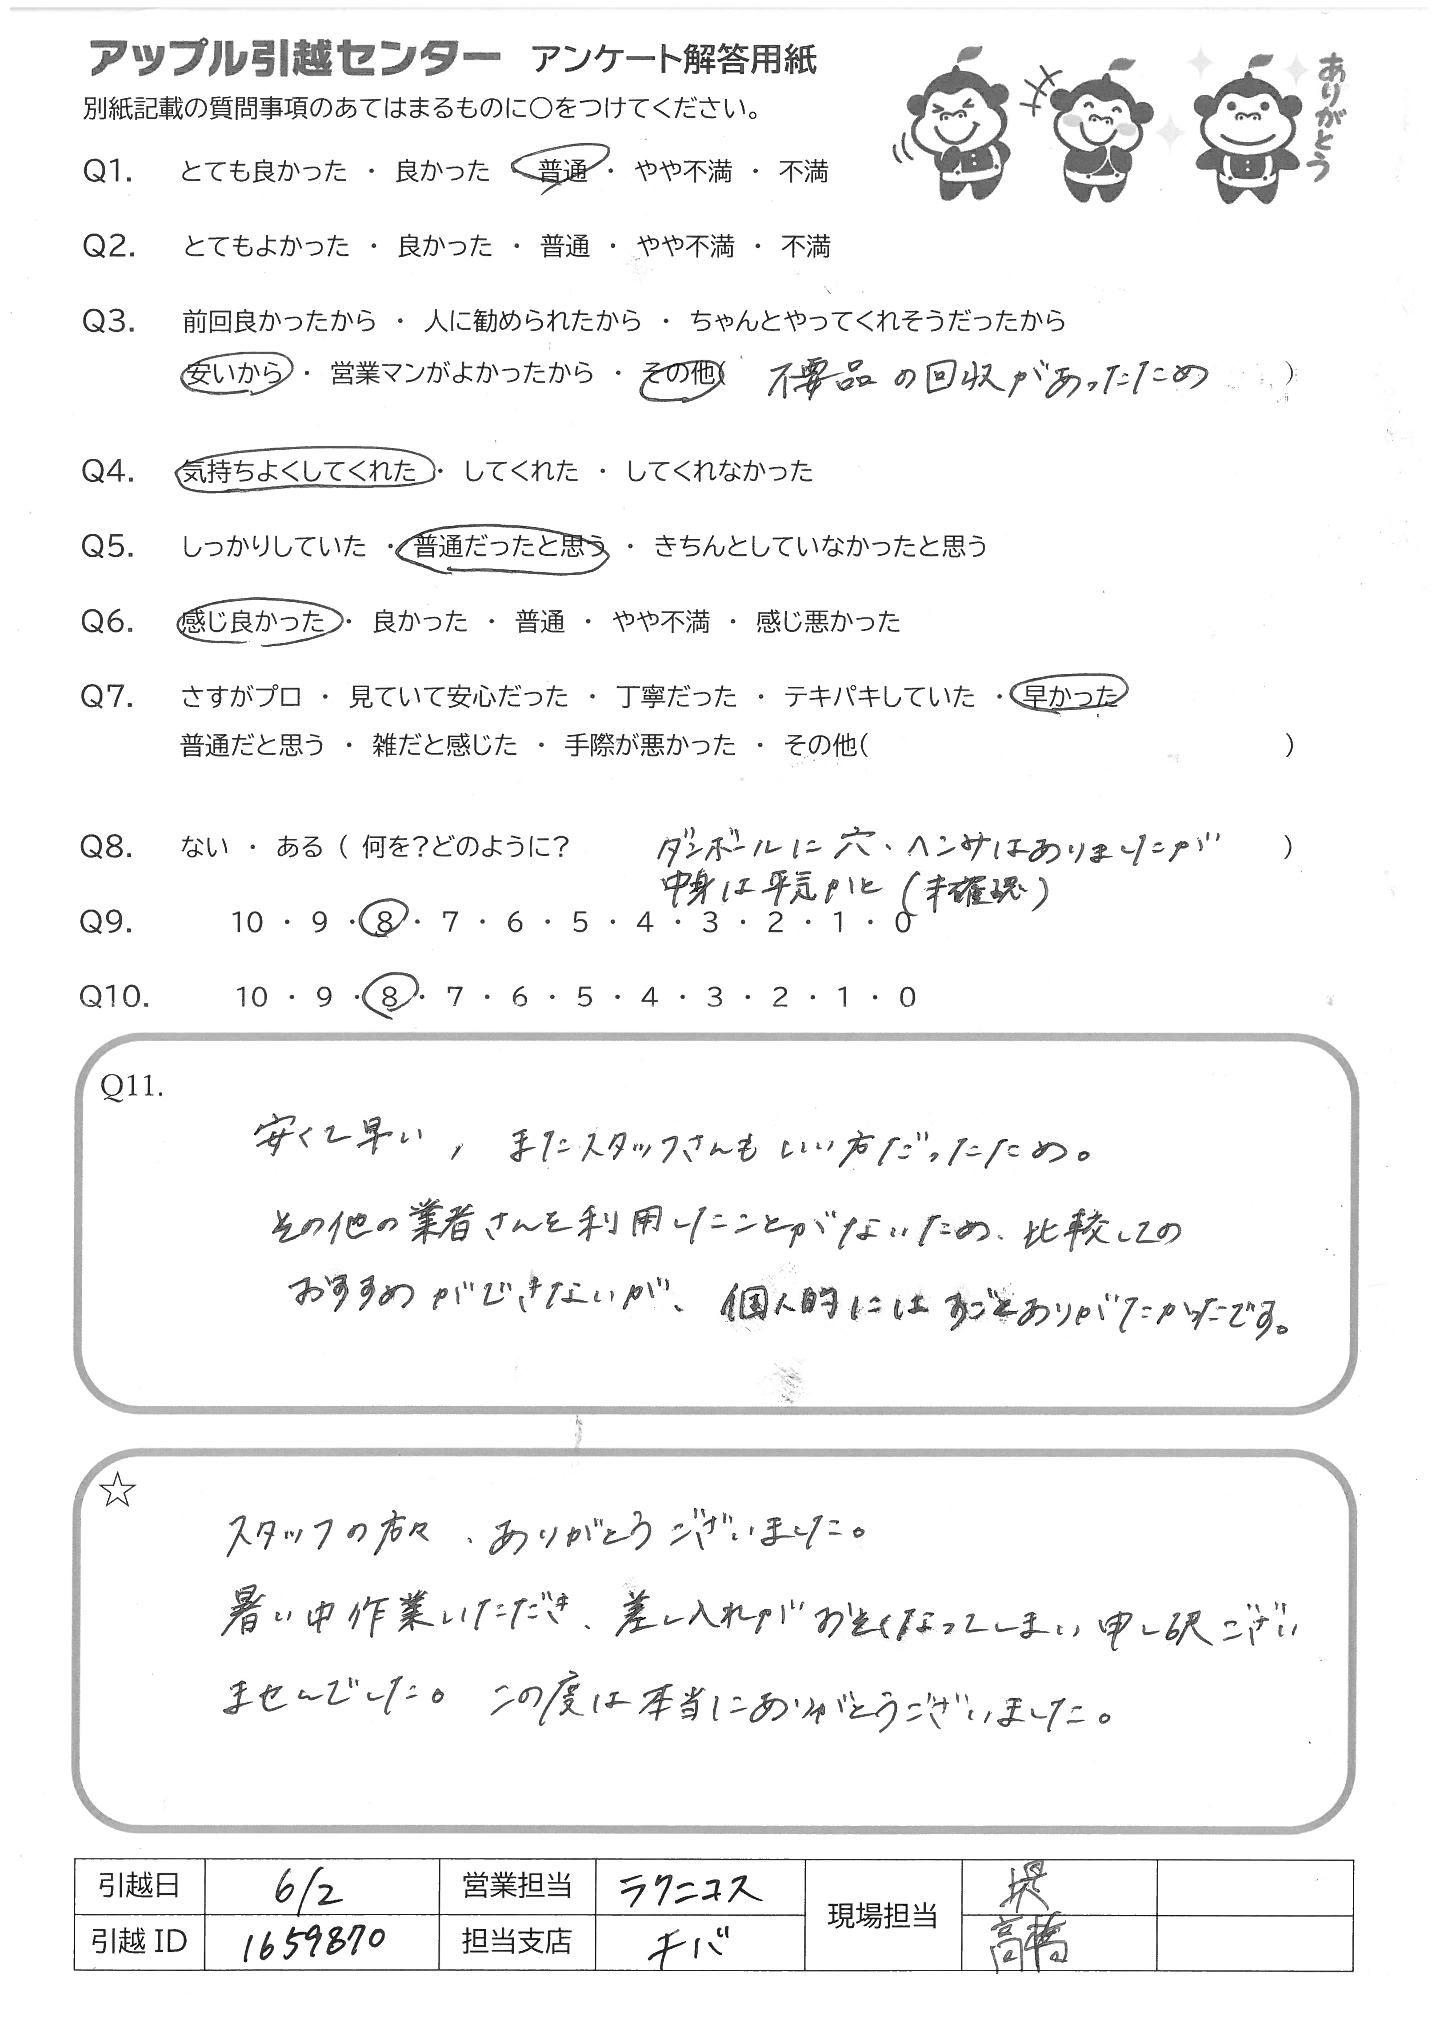 アップル引越センター アンケート解答用紙
ありがとう
別紙記載の質問事項のあてはまるものに〇をつけてください。
Q1. とても良かった ・ 良かった ・ 普通 ・ やや不満 ・ 不満
Q2. とてもよかった ・ 良かった ・ 普通 ・ やや不満 ・ 不満
Q3. 前回良かったから ・ 人に勧められたから ・ ちゃんとやってくれそうだったから
安いから ・ 営業マンがよかったから ・ その他( 不要品の回収があったため )
Q4. 気持ちよくしてくれた ・ してくれた ・ してくれなかった
Q5. しっかりしていた ・ 普通だったと思う ・ きちんとしていなかったと思う
Q6. 感じ良かった ・ 良かった ・ 普通 ・ やや不満 ・ 感じ悪かった
Q7. さすがプロ ・ 見ていて安心だった ・ 丁寧だった ・ テキパキしていた ・ 早かった
普通だと思う ・ 雑だと感じた ・ 手際が悪かった ・ その他( )
Q8. ない ・ ある ( 何を?どのように? ダンボールに穴、ヘンサはありましたが )
中身は平気かと (未確認)
Q9. 10 ・ 9 ・ 8 ・ 7 ・ 6 ・ 5 ・ 4 ・ 3 ・ 2 ・ 1 ・ 0
Q10. 10 ・ 9 ・ 8 ・ 7 ・ 6 ・ 5 ・ 4 ・ 3 ・ 2 ・ 1 ・ 0
Q11.
安くて早い, またスタッフさんもいい方だったため。
その他の業者さんを利用したことがないため、比較しての
おすすめができないが、個人的にはすごくありがたかったです。
☆
スタッフの方々、ありがとうございました。
暑い中作業いただき、差し入れがおそくなってしまい申し訳ござい
ませんでした。この度は本当にありがとうございました。
引越日 6/2 営業担当 ラクニコス 現場担当 堤
引越ID 1659870 担当支店 チバ 高橋